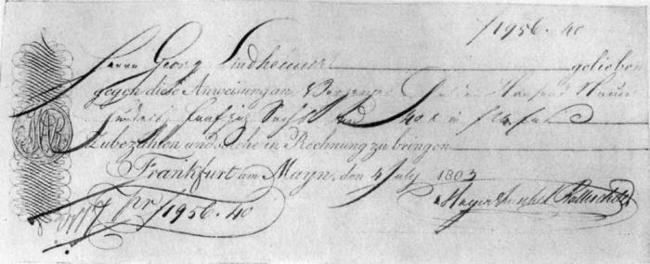 f 1956. 40
Herrn Georg Lindheimer gelieben
gegen diese Anweisung an Tausend Neun
Hundert, Fünfzig Sechs und 40 x
Zubezahlen und solche in Rechnung zu bringen
Frankfurt am Mayn, den 4 July 1803
pr f 1956. 40
Mayer Amschel Rothschild